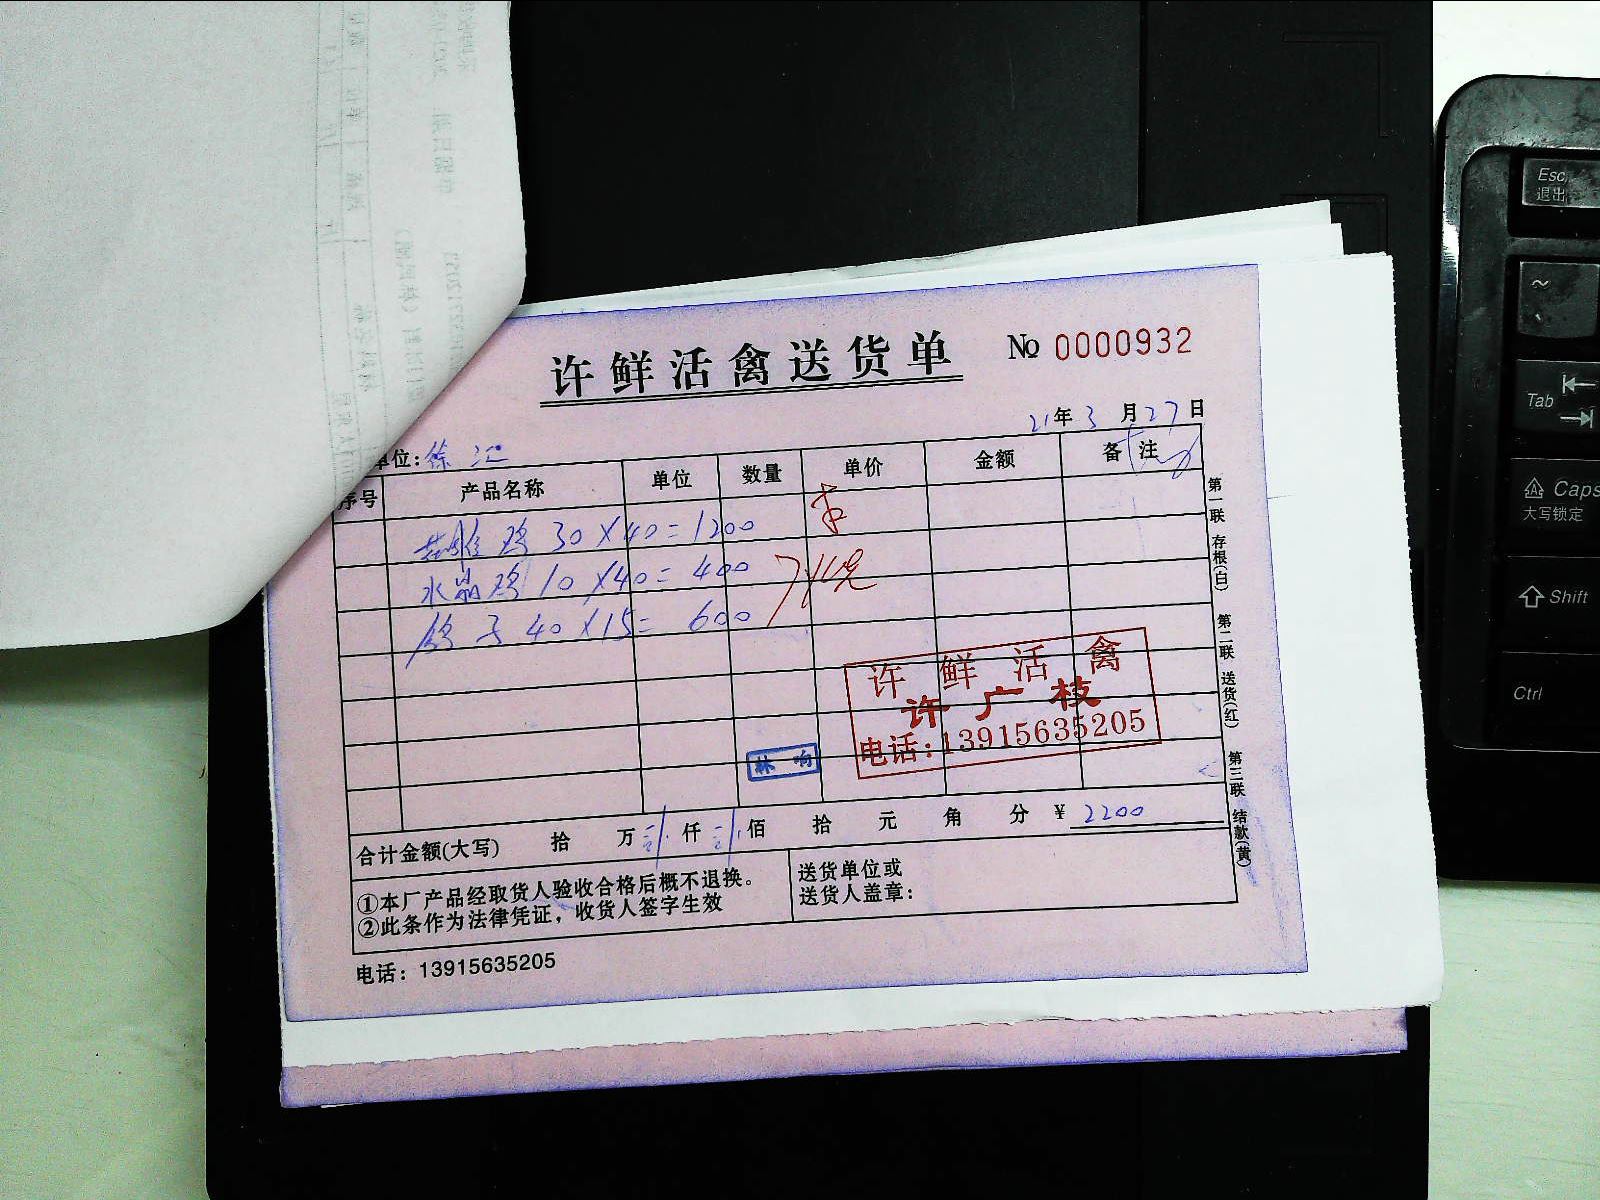 许鲜活禽送货单 № 0000932
21年3月27日
单位:徐汇
序号 产品名称 单位 数量 单价 金额 备注
鸡 30×40=1200
水晶鸡 10×40=400
鸽子 40×15=600
许鲜活禽
许广枝
电话:13915635205
林响
合计金额(大写) 拾 万 仟 佰 拾 元 角 分 ¥ 2200
①本厂产品经取货人验收合格后概不退换。
②此条作为法律凭证，收货人签字生效
送货单位或
送货人盖章:
电话: 13915635205
第一联 存根(白) 第二联 送货(红) 第三联 结款(黄)
Esc
退出
~
Tab
Caps
大写锁定
Shift
Ctrl